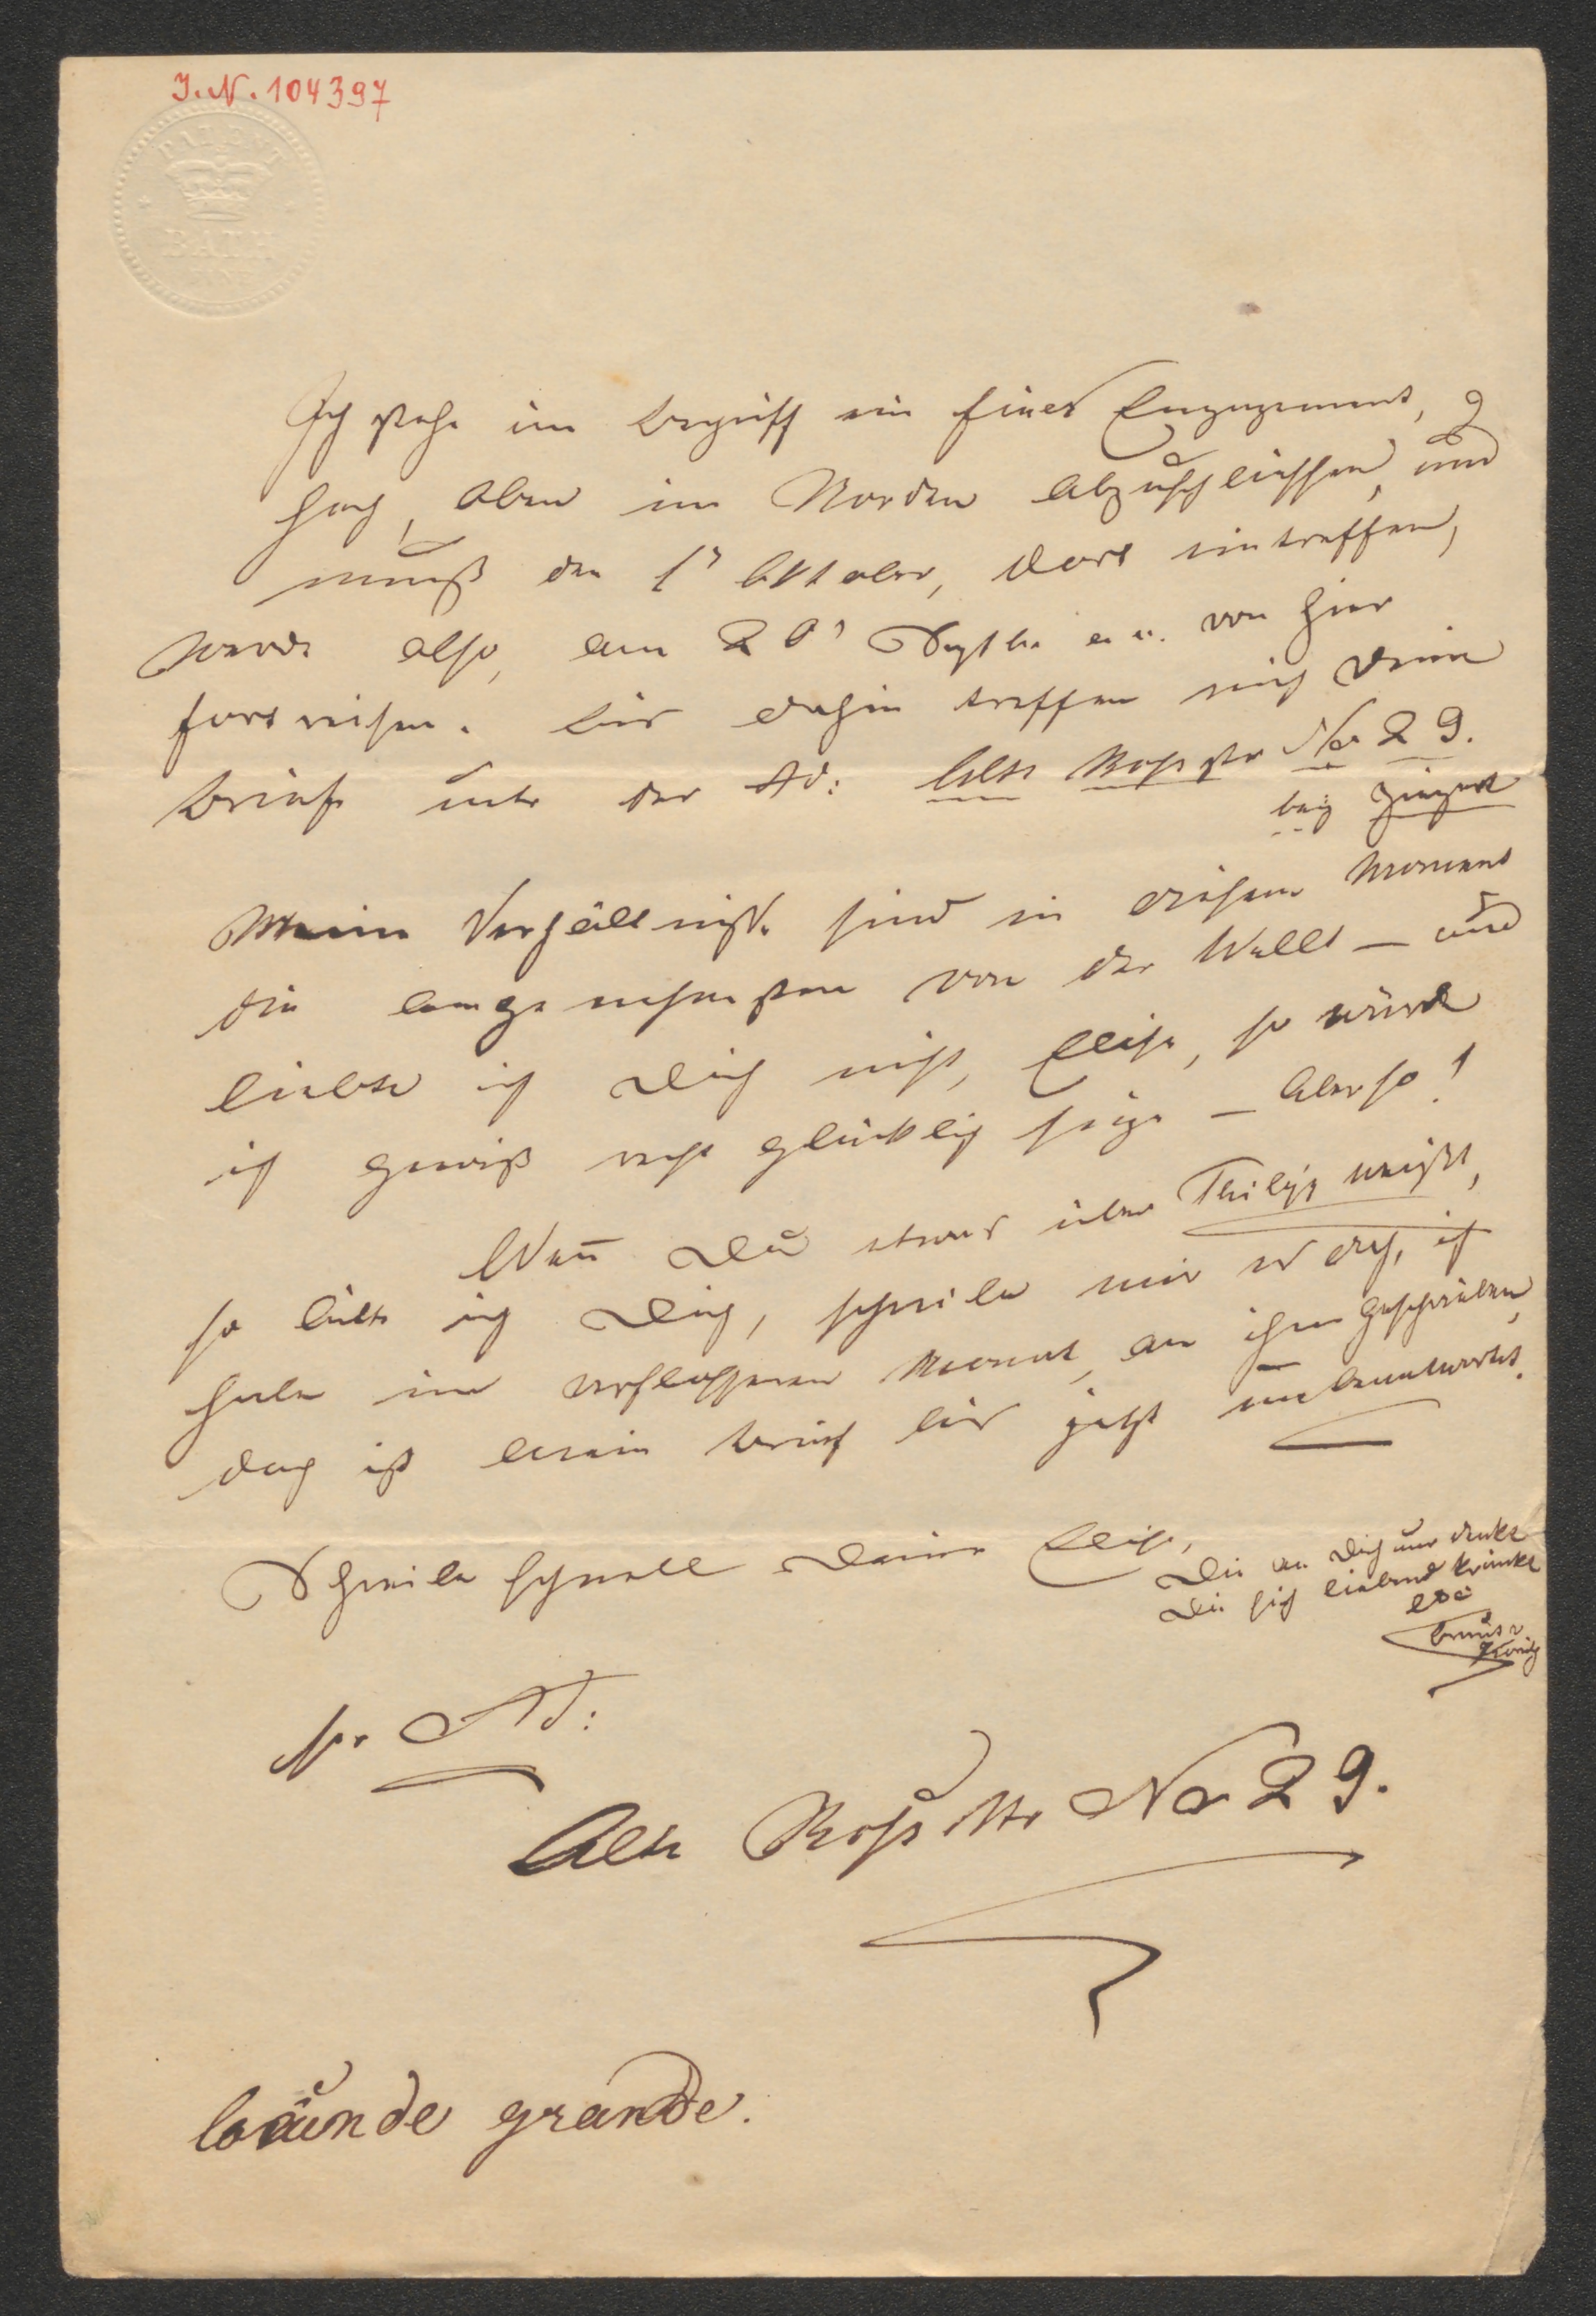 J. N. 104397
PATENT
BATH
Ich stehe im Begriff ein feines Engagement,
hoch, oben im Norden abzuschliessen, und
muß den 1' Oktober, dort eintreffen,
werde also, am 20' Septbr von hier
fortreisen. Bis dahin treffen mich Deine
Briefe unter der Ad: Alte Roßstr No 29.
bey
Meine Verhältniße sind in diesem Moment
die angenehmsten von der Wellt — und
liebte ich Dich nicht, Elise, so würde
ich gewiß recht glücklich seyn — Aber so!
Wen̄ Du etwas über weißt,
so bitte ich Dich, schreibe mir es doch, ich
habe im verfloßenen Monat, an ihn geschrieben,
doch ist mein Brief bis jetzt unbeantwortet.
Schreibe schnell Deiner Elise,
Die an Dich nur denkt
Die sich liebend kränkt
Ad:
Alte Roßstr No 29.
grande.